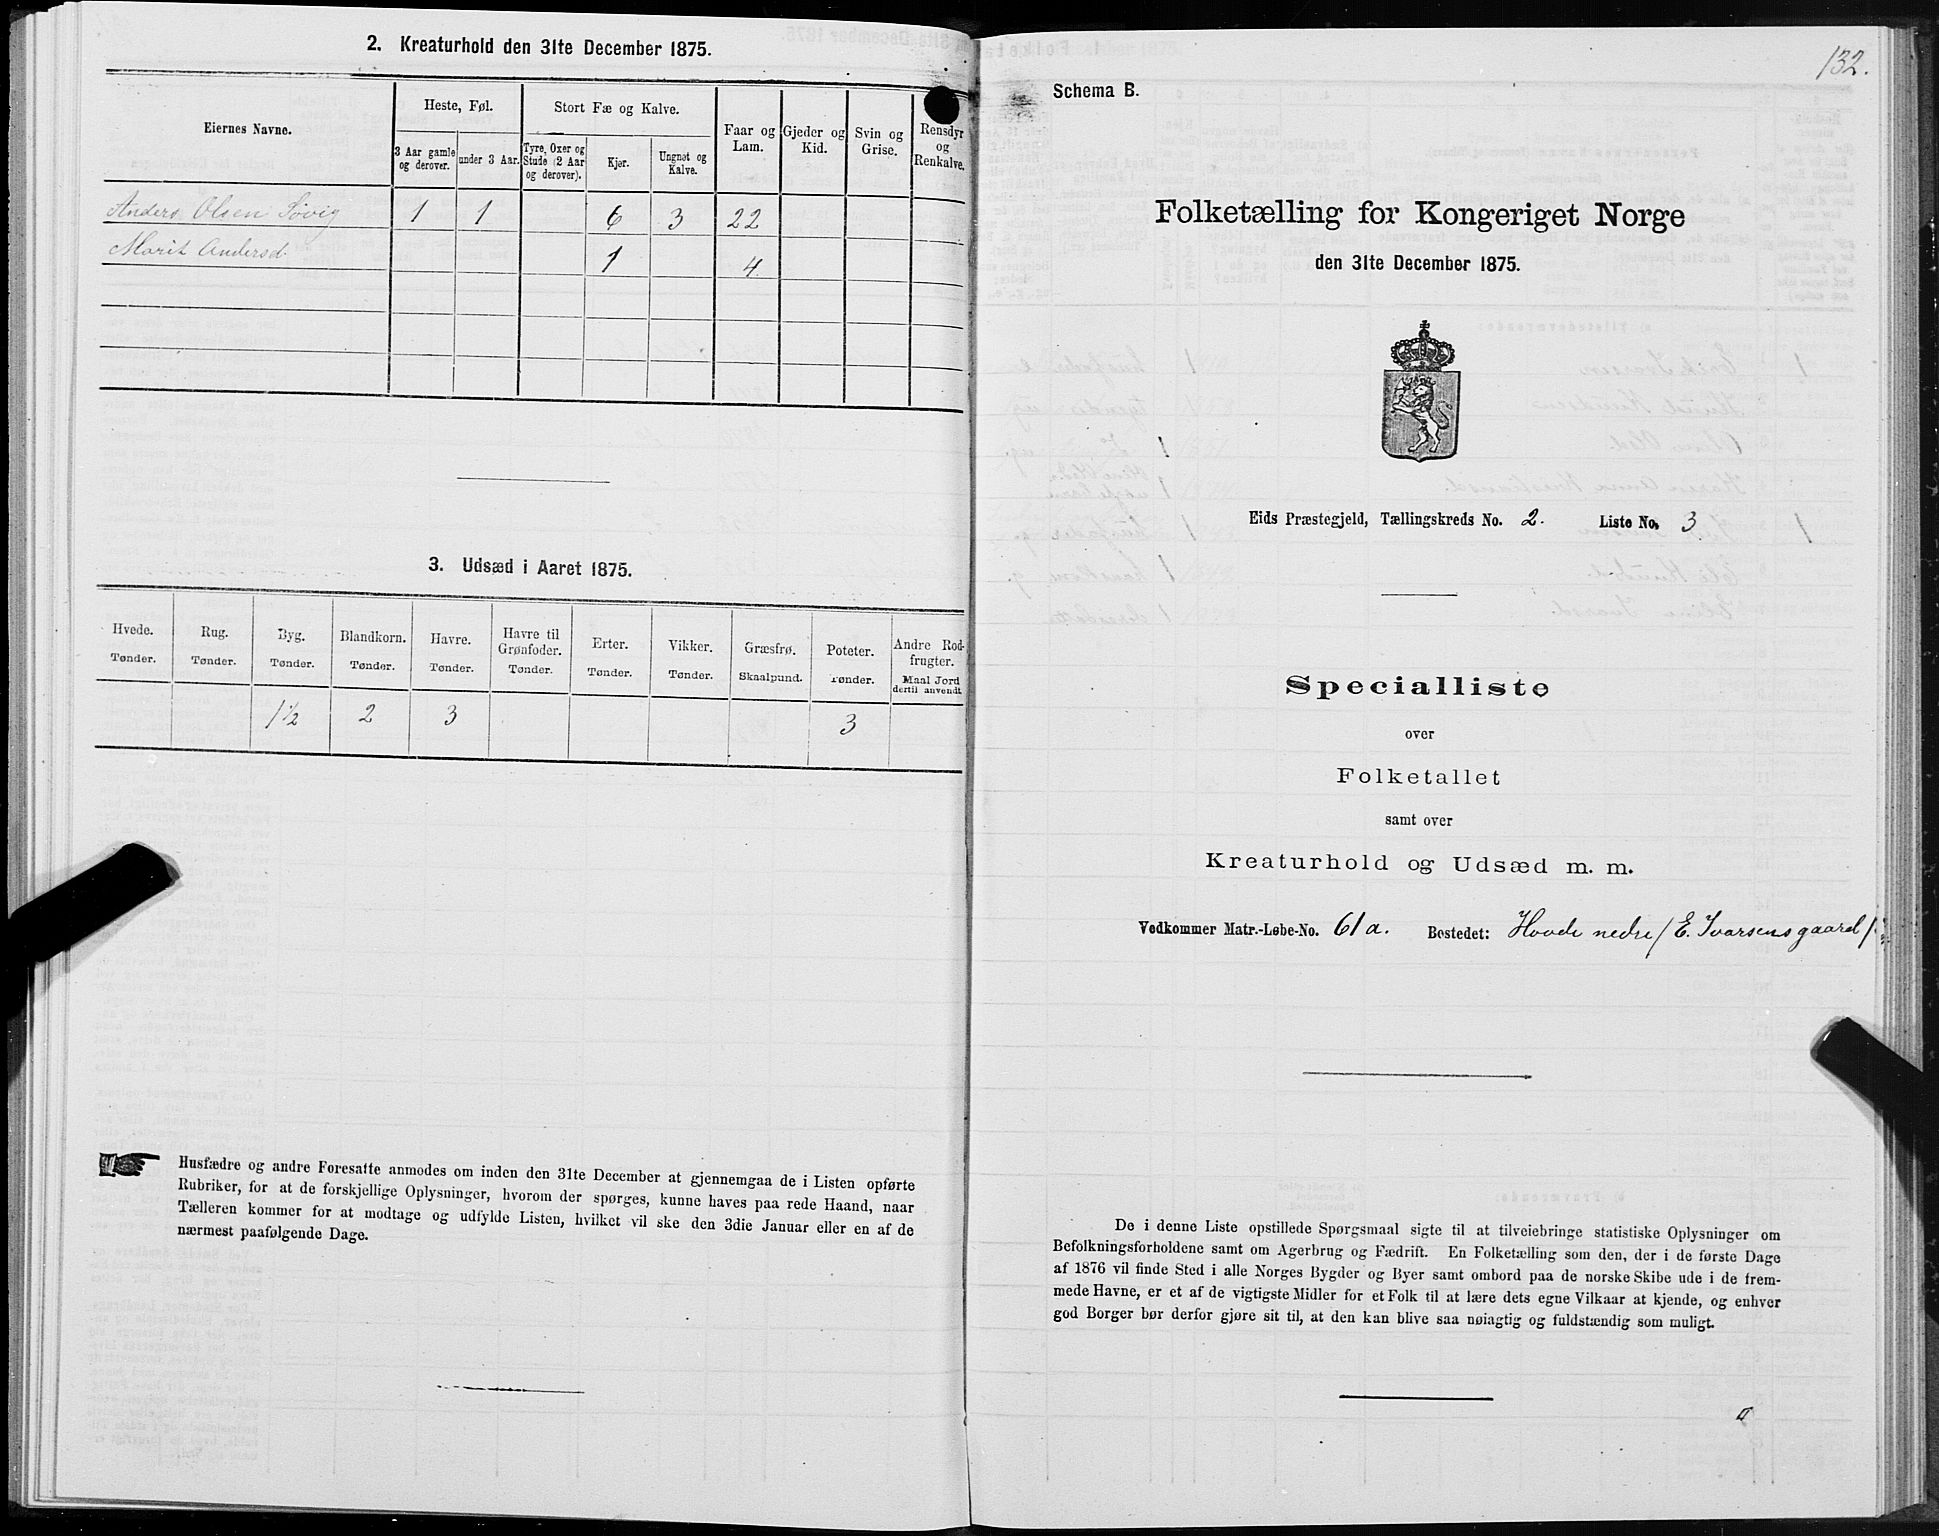 2. Kreaturhold den 31te December 1875.
Eiernes Navne.
Heste, Føl.
Stort Fæ og Kalve.
Faar og Lam.
Gjeder og Kid.
Svin og Grise.
Rensdyr og Renkalve.
3 Aar gamle og derover.
under 3 Aar.
Tyre, Oxer og Stude (2 Aar og derover).
Kjør.
Ungnøt og Kalve.
Anders Olsen Søvig 1 1 6 3 22
Marit Andersd. 1 4
3. Udsæd i Aaret 1875.
Hvede. Rug. Byg. Blandkorn. Havre. Havre til Grønfoder. Erter. Vikker. Græsfrø. Poteter. Andre Rodfrugter.
Tønder. Tønder. Tønder. Tønder. Tønder. Tønder. Tønder. Tønder. Skaalpund. Tønder. Maal Jord dertil anvendt
1½ 2 3 3
Husfædre og andre Foresatte anmodes om inden den 31te December at gjennemgaa de i Listen opførte
Rubriker, for at de forskjellige Oplysninger, hvorom der spørges, kunne haves paa rede Haand, naar
Tælleren kommer for at modtage og udfylde Listen, hvilket vil ske den 3die Januar eller en af de
nærmest paafølgende Dage.
132.
Schema B.
Folketælling for Kongeriget Norge
den 31te December 1875.
Eids Præstegjeld, Tællingskreds No. 2. Liste No. 3
Specialliste
over
Folketallet
samt over
Kreaturhold og Udsæd m. m.
Vedkommer Matr.-Løbe-No. 61a. Bostedet: Hovde nedre / E. Ivarsensgaard /
De i denne Liste opstillede Spørgsmaal sigte til at tilveiebringe statistiske Oplysninger om
Befolkningsforholdene samt om Agerbrug og Fædrift. En Folketælling som den, der i de første Dage
af 1876 vil finde Sted i alle Norges Bygder og Byer samt ombord paa de norske Skibe ude i de frem-
mede Havne, er et af de vigtigste Midler for et Folk til at lære dets egne Vilkaar at kjende, og enhver
god Borger bør derfor gjøre sit til, at den kan blive saa nøiagtig og fuldstændig som muligt.